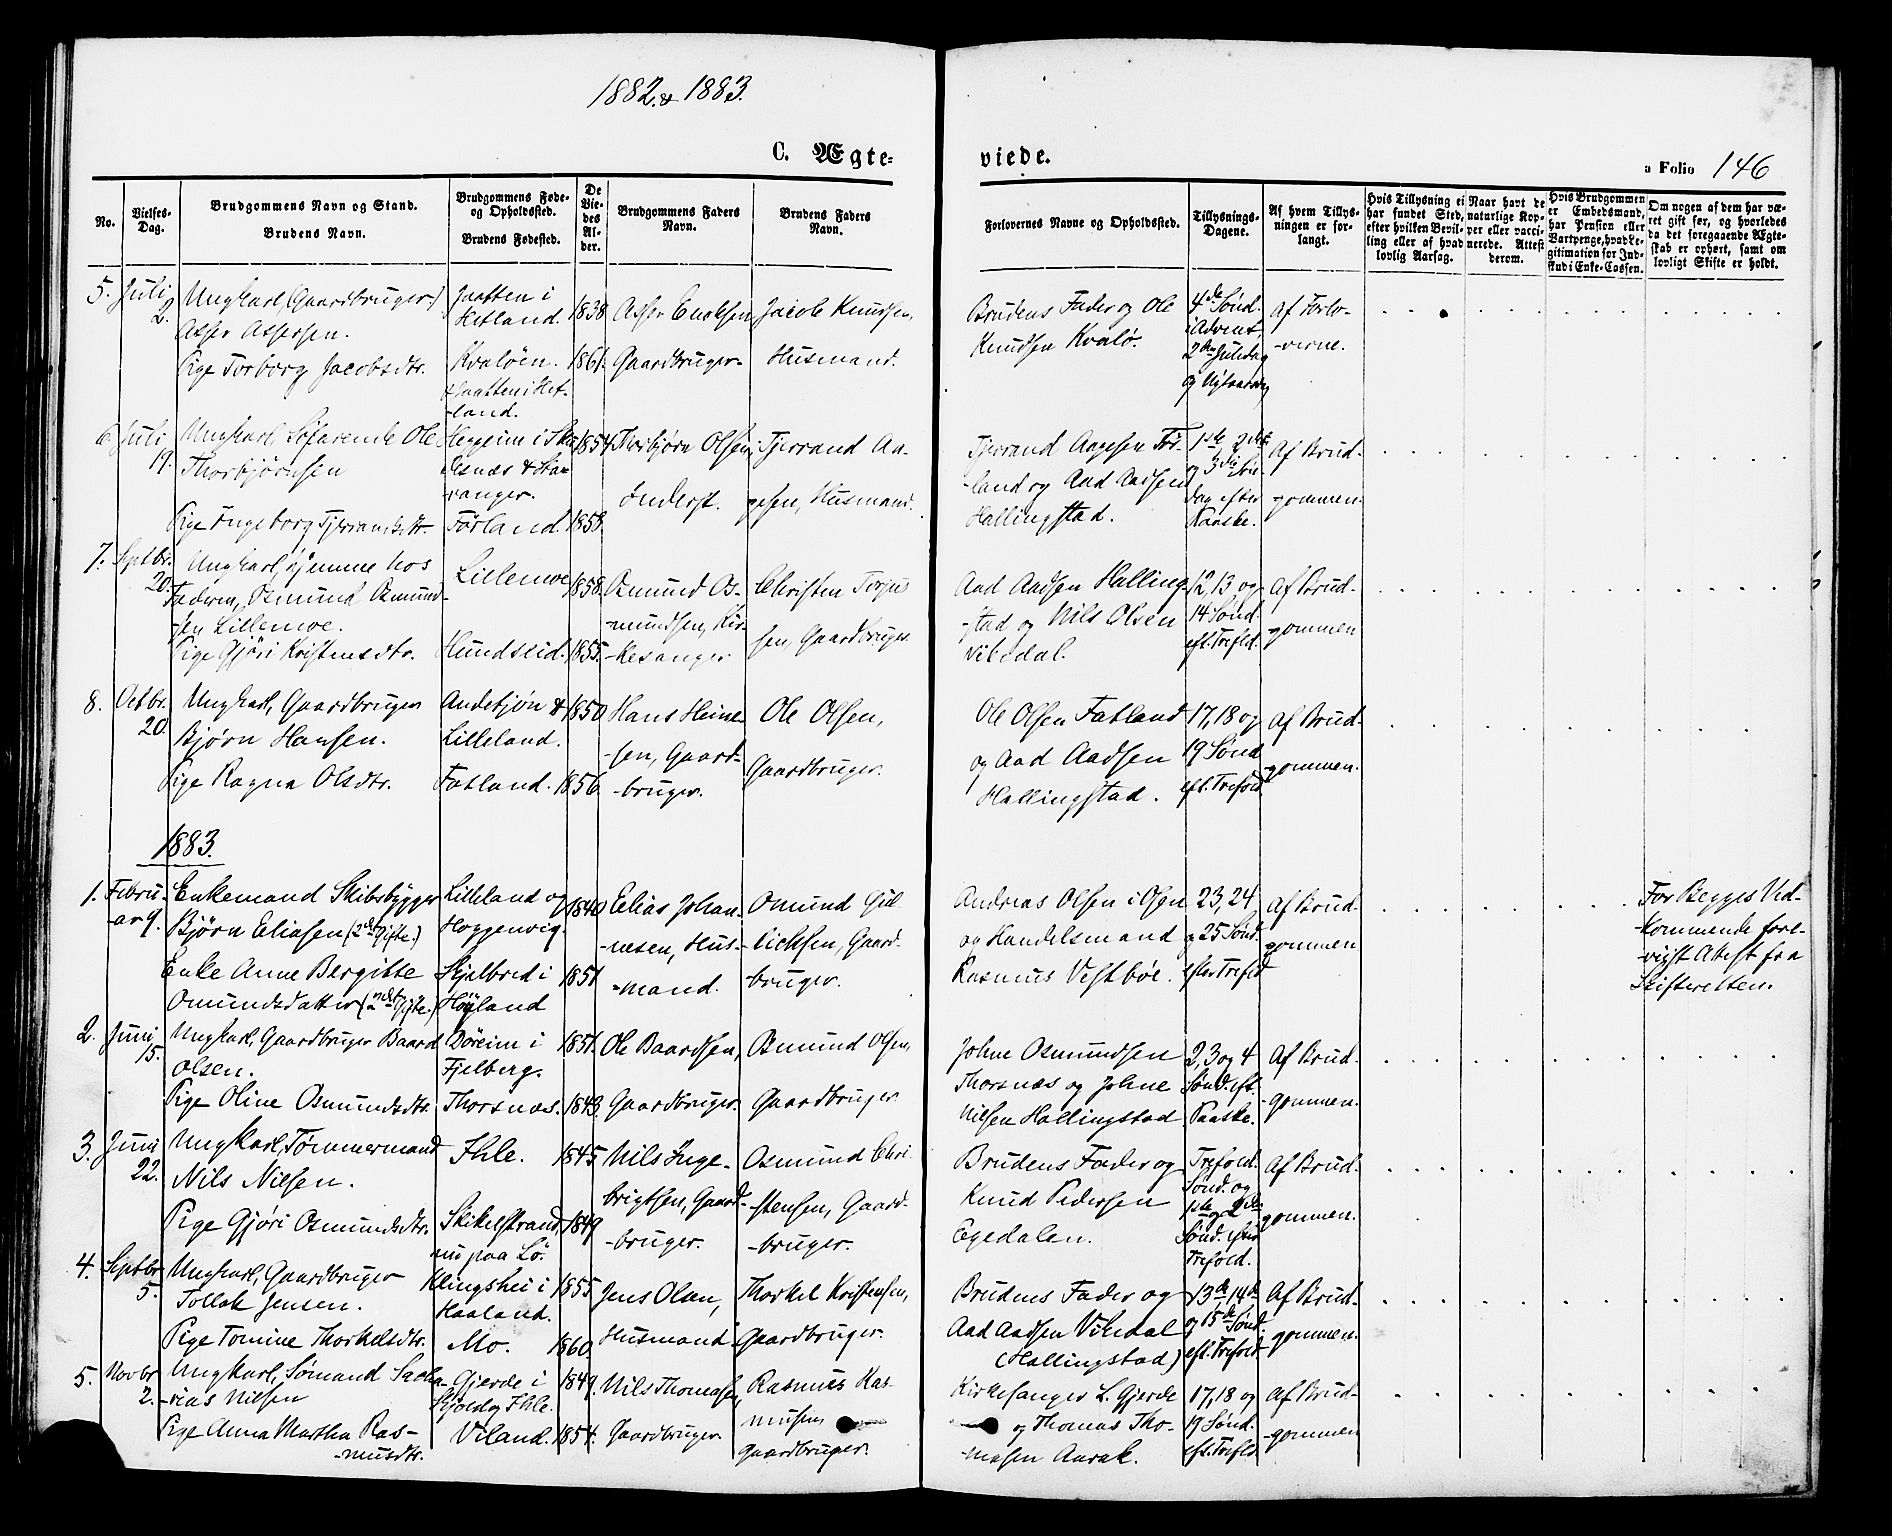 1882 & 1883.
C. Ægte=
viede.
a Folio 146
No.
Vielses-Dag.
Brudgommens Navn og Stand.
Brudens Navn.
Brudgommens Føde- og Opholdssted.
Brudens Fødested.
De Viedes Alder.
Brudgommens Faders Navn.
Brudens Faders Navn.
Forlovernes Navne og Opholdssted.
Tillysnings-Dagene.
Af hvem Tillysningen er forlangt.
Hvis Tillysning ei har fundet Sted, efter hvilken Bevilling eller af hvad lovlig Aarsag.
Naar havt de naturlige Kopper eller vaccinerede. Attest derom.
Hvis Brudgommen er Embedsmand, har Pension eller Vartpenge, hvad Legitimation for Indskud i Enke-Cassen.
Om nogen af dem har været gift før, og hvorledes da det foregaaende Ægteskab er ophørt, samt om lovligt Skifte er holdt.
5. Juli 2.
Ungkarl, (Gaardbruger)
Asser Assersen.
Pige Torborg Jacobsdtr.
Jaatten i
Hetland.
Kvaløen.
& Jaatten i Het-
-land.
1838
1861.
Asser Enoksen
Gaardbruger
Jacob Knudsen,
Husmand.
Brudens Fader og Ole
Knudsen Kvalø.
4de Sønd.
i Advent
2den Juledag
og Nytaarsdag
af Forlo-
-verne.
6. Juli 19.
Ungkarl Søfarende Ole
Thorbjørnsen
Pige Ingeborg Tjerandsdtr.
Heggeim i Sku-
desnæs & Sta-
vanger.
Førland.
1854.
1858.
Thorbjørn Olsen,
Inderst.
Tjerrand Aa-
gesen, Husmand.
Tjerrand Aagesen Før-
-land og Aad Aadsen
Hallingstad.
1ste, 2den
og 3die Søn-
dag efter
Paaske.
Af Brud-
-gommen.
7. Septbr. 20.
Ungkarl, hjemme hos
Faderen, Osmund Osmund-
-sen Lillemoe.
Pige Gjøri Kristensdtr.
Lillemoe
Hundseid.
1858.
1855.
Osmund Os-
-mundsen, Kir-
-kesanger
Christen Torjus
sen, Gaardbruger
Aad Aadsen Halling-
-stad og Nils Olsen
Vikedal.
12, 13 og
14 Sønd.
eft. Trefld.
Af Brud-
-gommen
8. Octbr. 20.
Ungkarl, Gaardbruger
Bjørn Hansen.
Pige Ragna Olsdtr.
Andetjøn &
Lilleland.
Fatland.
1850
1856
Hans Heine-
-sen, Gaard-
-bruger.
Ole Olsen,
Gaardbruger.
Ole Olsen Fatland
og Aad Aadsen
Hallingstad.
17, 18 og
19 Sønd
eft. Trefold
Af Brud-
gommen.
1883.
1. Febru-
ar 9.
Enkemand Skibsbygger
Bjørn Eliasen (2den Gifte.)
Enke Anne Bergitte
Omundsdatter (2det Gifte.)
Lilleland og
Hoggenvig.
Skjelbred i
Høyland
1840
1851
Elias Johan-
-nesen, Hus-
-mand.
Omund Gul
lichsen, Gaard-
bruger.
Andreas Olsen i Ølen
og Handelsmand
Rasmus Vestbøe.
23, 24
og 25 Sønd.
efter Trefld
Af Brud-
gommen
For Begges Ved-
-kommende fore-
vist Attest fra
Skifteretten.
2. Juni 15.
Ungkarl, Gaardbruger Baard
Olsen.
Pige Oline Osmundsdtr.
Døreim i
Fjelberg.
Thorsnæs.
1851.
1843.
Ole Baardsen,
Gaardbruger.
Osmund Olsen,
Gaardbruger
Johne Osmundsen
Thorsnæs og Johne
Nilsen Hallingstad
2, 3 og 4
Sønd. eft.
Paaske.
Af Brud-
-gommen.
3. Juni 22.
Ungkarl, Tømmermand
Nils Nielsen.
Pige Gjøri Osmundsdtr.
Ihle.
Skikelstrand,
nu paa Lø.
1845
1849
Nils Inge-
brigtsen, Gaard-
-bruger.
Osmund Chri-
-stensen, Gaard-
-bruger.
Brudens Fader og
Knud Pedersen
Egedalen.
Trefold.
Sønd. og
1ste og 2den
Sønd. efter
Trefold.
Af Brud-
gommen.
4. Septbr 5.
Ungkarl, Gaardbruger
Tollak Jensen.
Pige Tomine Thorkelsdtr.
Klingshei i
Haaland.
Mo.
1855.
1860.
Jens Olsen,
Husmand
Thorkel Kristensen,
Gaardbruger.
Brudens Fader og
Aad Aadsen Vikedal
(Hallingstad)
13de, 14de
og 15de Sønd.
eft. Trefold
Af Brud-
gommen.
5. Novbr 2.
Ungkarl, Sømand Sacha-
-rias Nilsen
Pige Anna Martha Ras-
-musdtr.
Gjerde i
Skjold og Ihle.
Viland.
1849
1854.
Nils Thomasen,
Gaardbruger
Rasmus Ras-
musen,
Gaardbruger.
Kirkesanger L. Gjerde
og Thomas Tho-
-masen Aarak.
17, 18 og
19 Sønd.
eft. Trefld
Af Brud-
-gommen